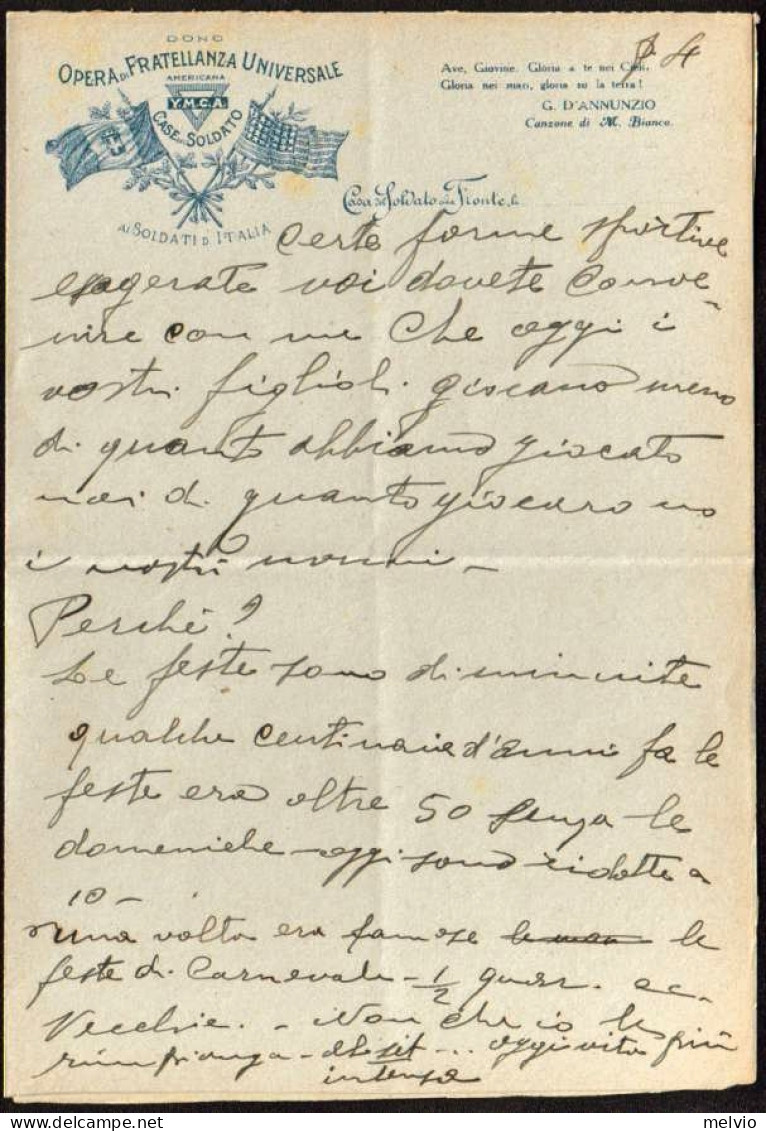 DONO
OPERA DI FRATELLANZA UNIVERSALE
AMERICANA
Y.M.C.A.
CASE DEL SOLDATO
AI SOLDATI D'ITALIA
4
Ave, Giovine. Gloria a te nei Cieli,
Gloria nei mari, gloria su la terra!
G. D'ANNUNZIO
Canzone di M. Bianco.
Casa del Soldato alla Fronte, li
Certe forme sportive
esagerate voi dovete conve-
nire con me che oggi i
vostri figlioli giocano meno
di quanto abbiamo giocato
noi di quanto giocarono
i nostri nonni -
Perché?
Le feste sono diminuite
qualche centinaia d'anni fa le
feste era oltre 50 senza le
domeniche - oggi sono ridotte a
10 -
una volta era famose le
feste di Carnevale - 1/2 quar. ec.
Vecchie. - Non che io le
rimpianga - ... oggi vita più
intensa
delcampe.net
melvio